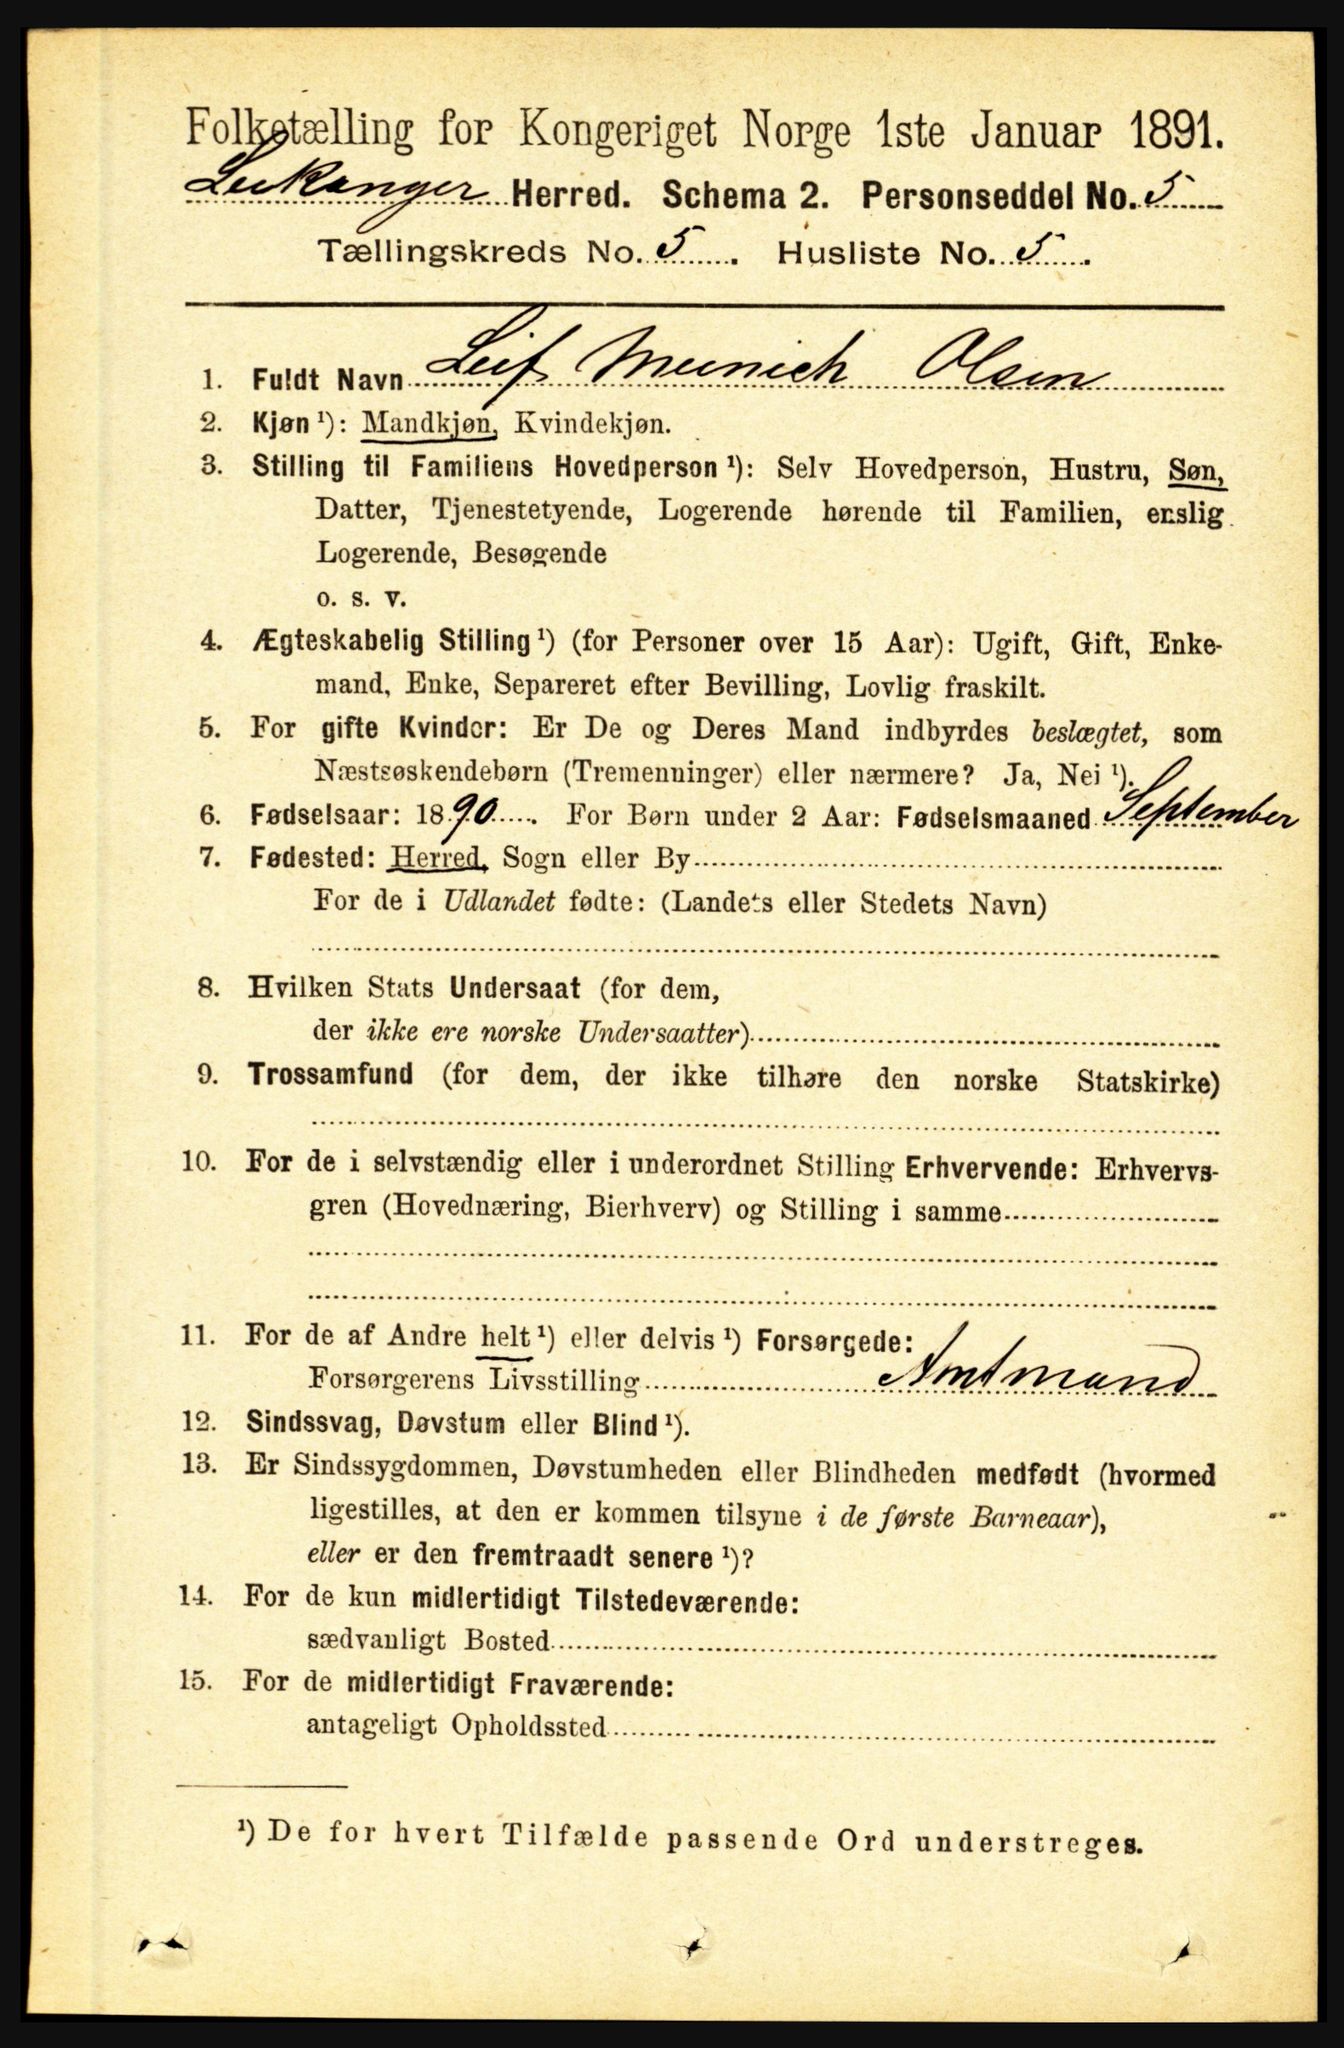 Folketælling for Kongeriget Norge 1ste Januar 1891.
Leikanger Herred. Schema 2. Personseddel No. 5
Tællingskreds No. 5. Husliste No. 5.
1. Fuldt Navn Leif Munich Olsen
2. Kjøn ¹): Mandkjøn, Kvindekjøn.
3. Stilling til Familiens Hovedperson ¹): Selv Hovedperson, Hustru, Søn,
Datter, Tjenestetyende, Logerende hørende til Familien, enslig
Logerende, Besøgende
o. s. v.
4. Ægteskabelig Stilling ¹) (for Personer over 15 Aar): Ugift, Gift, Enke-
mand, Enke, Separeret efter Bevilling, Lovlig fraskilt.
5. For gifte Kvinder: Er De og Deres Mand indbyrdes beslægtet, som
Næstsøskendebørn (Tremenninger) eller nærmere? Ja, Nei ¹).
6. Fødselsaar: 1890. For Børn under 2 Aar: Fødselsmaaned September
7. Fødested: Herred, Sogn eller By
For de i Udlandet fødte: (Landets eller Stedets Navn)
8. Hvilken Stats Undersaat (for dem,
der ikke ere norske Undersaatter)
9. Trossamfund (for dem, der ikke tilhøre den norske Statskirke)
10. For de i selvstændig eller i underordnet Stilling Erhvervende: Erhvervs-
gren (Hovednæring, Bierhverv) og Stilling i samme
11. For de af Andre helt ¹) eller delvis ¹) Forsørgede:
Forsørgerens Livsstilling Amtmand
12. Sindssvag, Døvstum eller Blind ¹).
13. Er Sindssygdommen, Døvstumheden eller Blindheden medfødt (hvormed
ligestilles, at den er kommen tilsyne i de første Barneaar),
eller er den fremtraadt senere ¹)?
14. For de kun midlertidigt Tilstedeværende:
sædvanligt Bosted
15. For de midlertidigt Fraværende:
antageligt Opholdssted
¹) De for hvert Tilfælde passende Ord understreges.